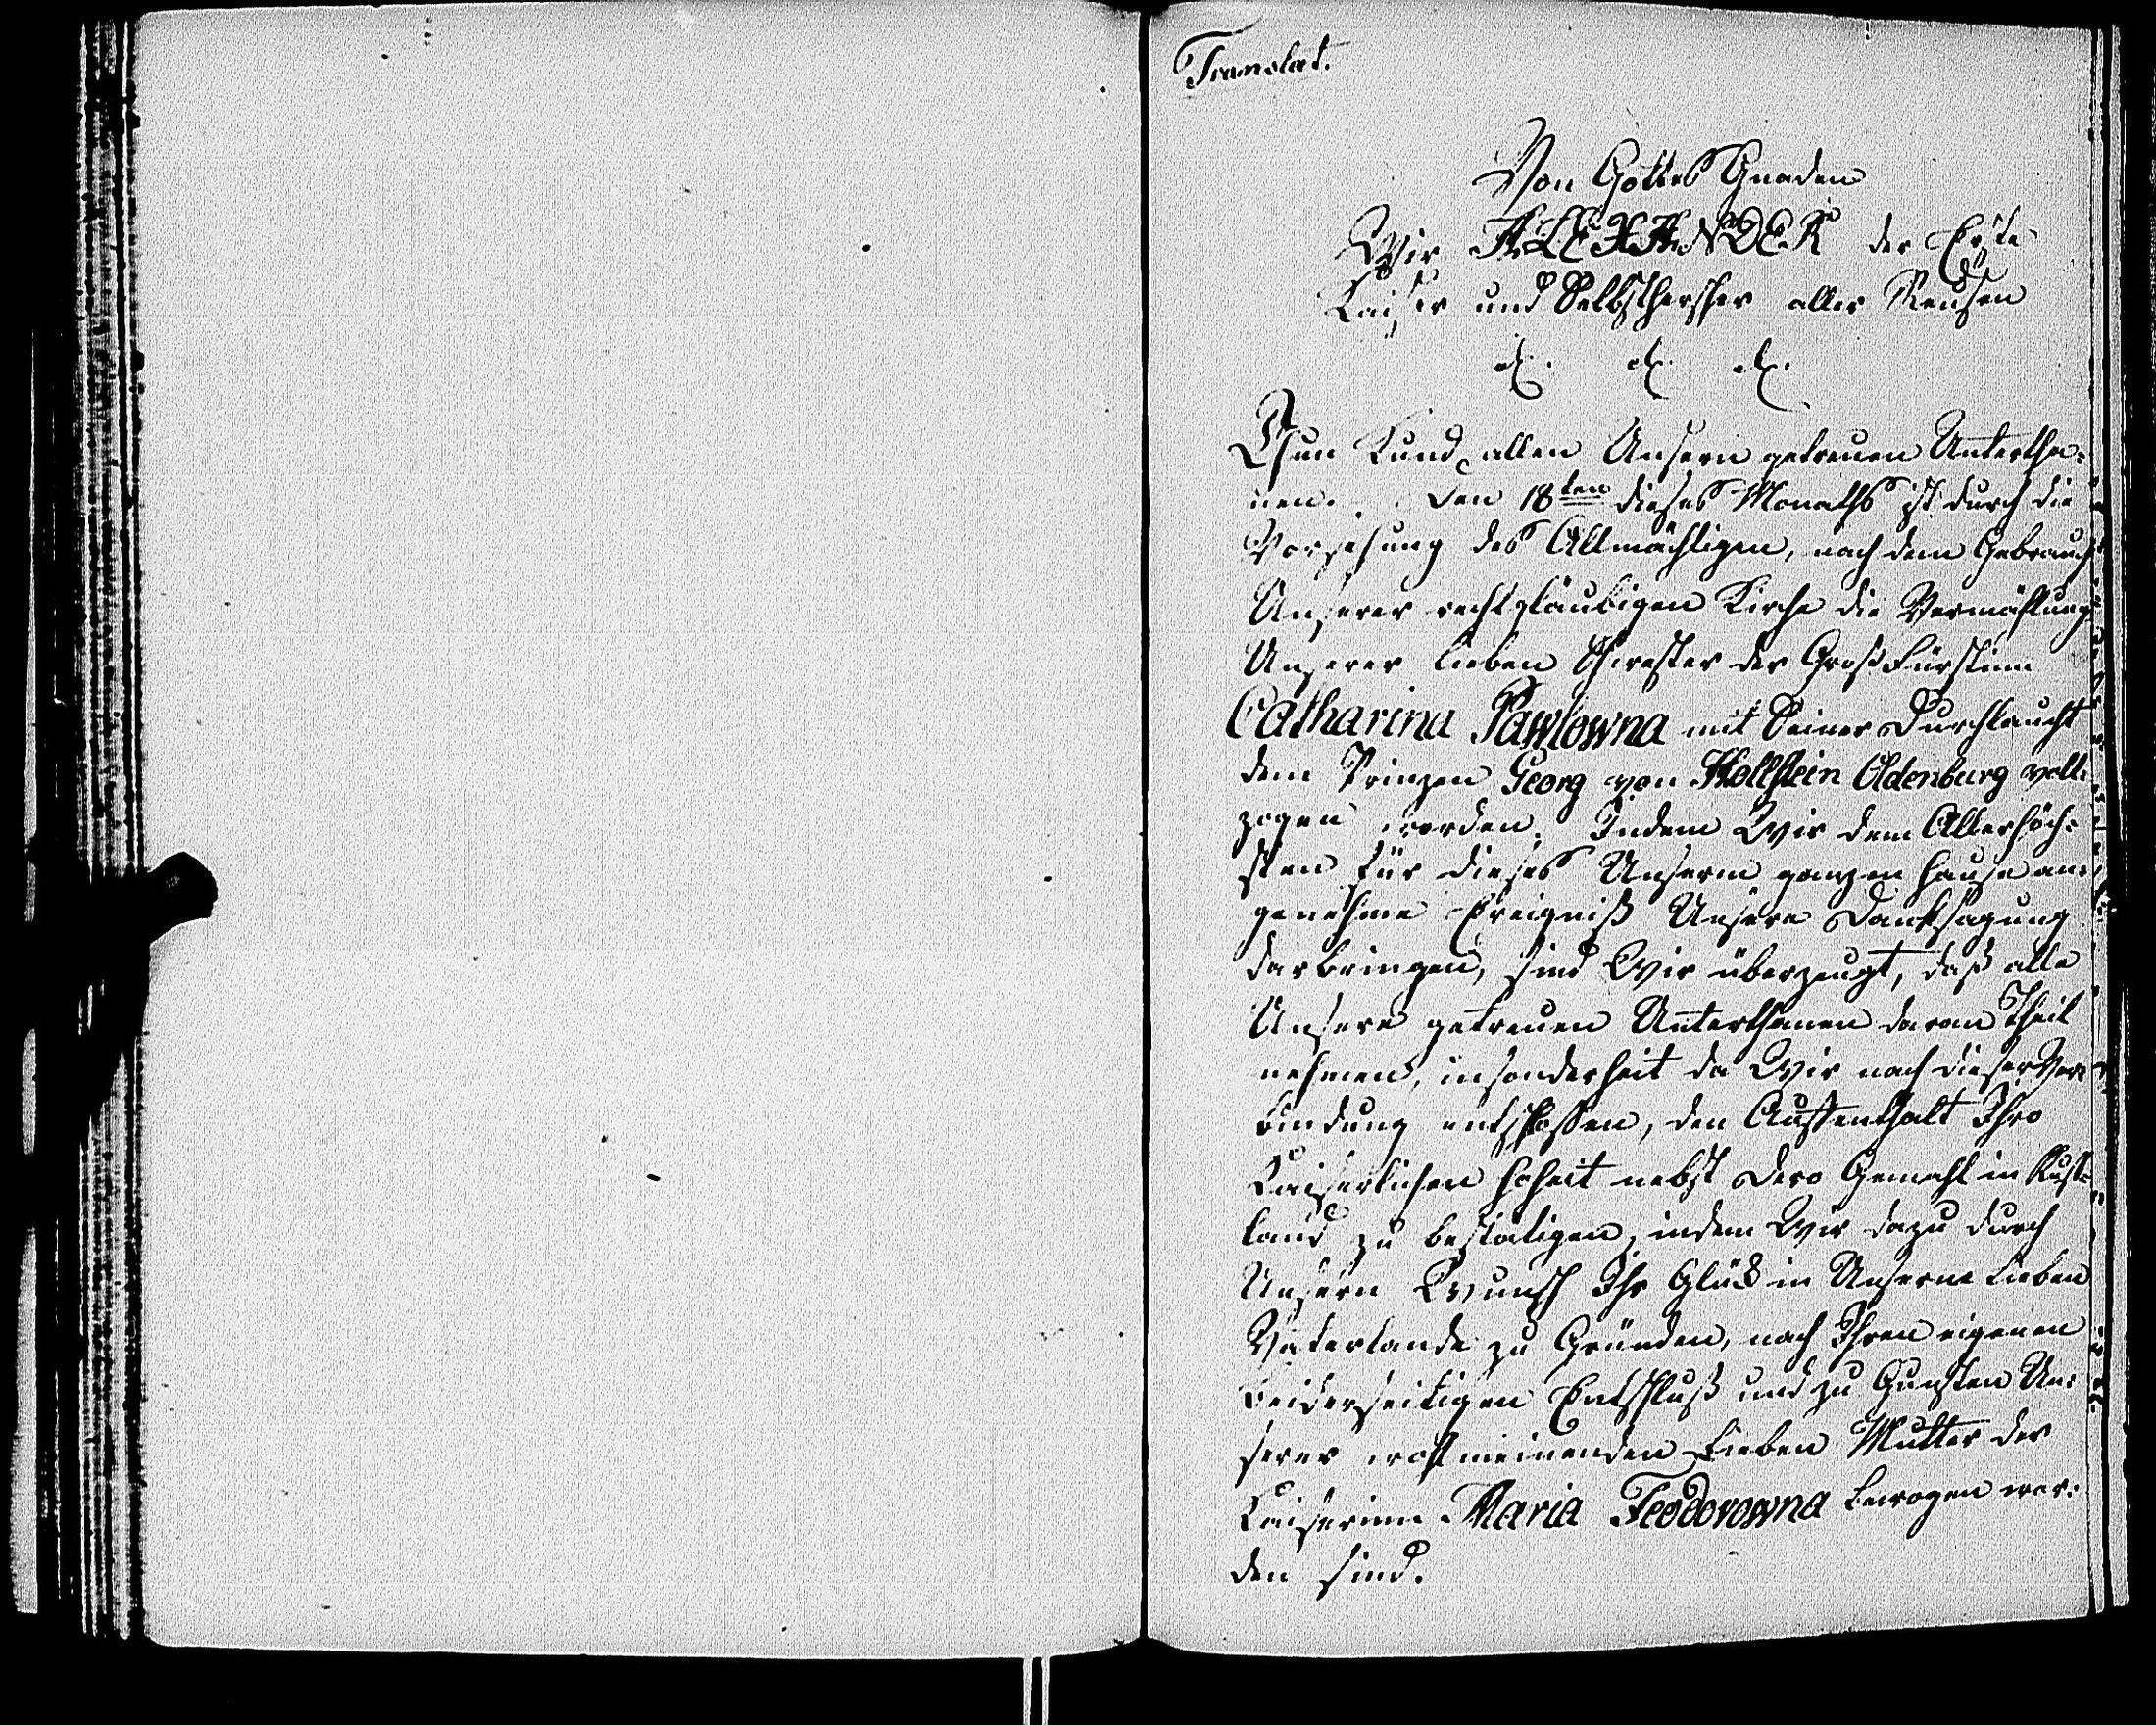 Translat.
Von Gottes Gnaden
Wir ALEXANDER der Erste
Kaiser und Selbsthersher aller Reusen
etc. etc. etc.
Thun kund allen Unsern getreuen Untertha-
nen. Den 18ten dieses Monaths ist durch die
Vorsehung des Allmächtigen, nach dem Gebrauch
Unserer rechtgläubigen Kirche die Vermählung
Unserer lieben Schwester der Großfürstinn
Catharina Pawlowna mit Seiner Durchlaucht
dem Prinzen Georg von Hollstein Oldenburg voll-
zogen worden. Indem Wir dem Allerhöch-
sten für dieses Unserm ganzen Hause an-
genehme Ereigniß Unsere Danksagung
darbringen, sind Wir überzeugt, daß alle
Unsere getreuen Unterthanen daran Theil
nehmen, insonderheit da Wir nach dieser Ver-
bindung entschlossen, den Auffenthalt Ihro
Kaiserlichen Hoheit nebst Dero Gemahl in Ruß-
land zu bestätigen, indem Wir dazu durch
Unsern Wunsch Ihr Glück in Unserm lieben
Vaterlande zu Gründen, nach Ihren eigenen
beiderseitigen Entschluß und zu Gunsten Un-
serer wohlmeinenden Lieben Mutter der
Kaiserinn Maria Feodorowna bewogen wor-
den sind.